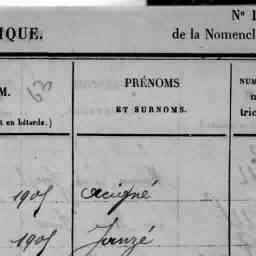 Nº 1
IQUE.
de la Nomencl
M.
63
PRÉNOMS
ET SURNOMS.
NUM
tric
t en bâtarde.)
1905 Acigné
1905 Janzé